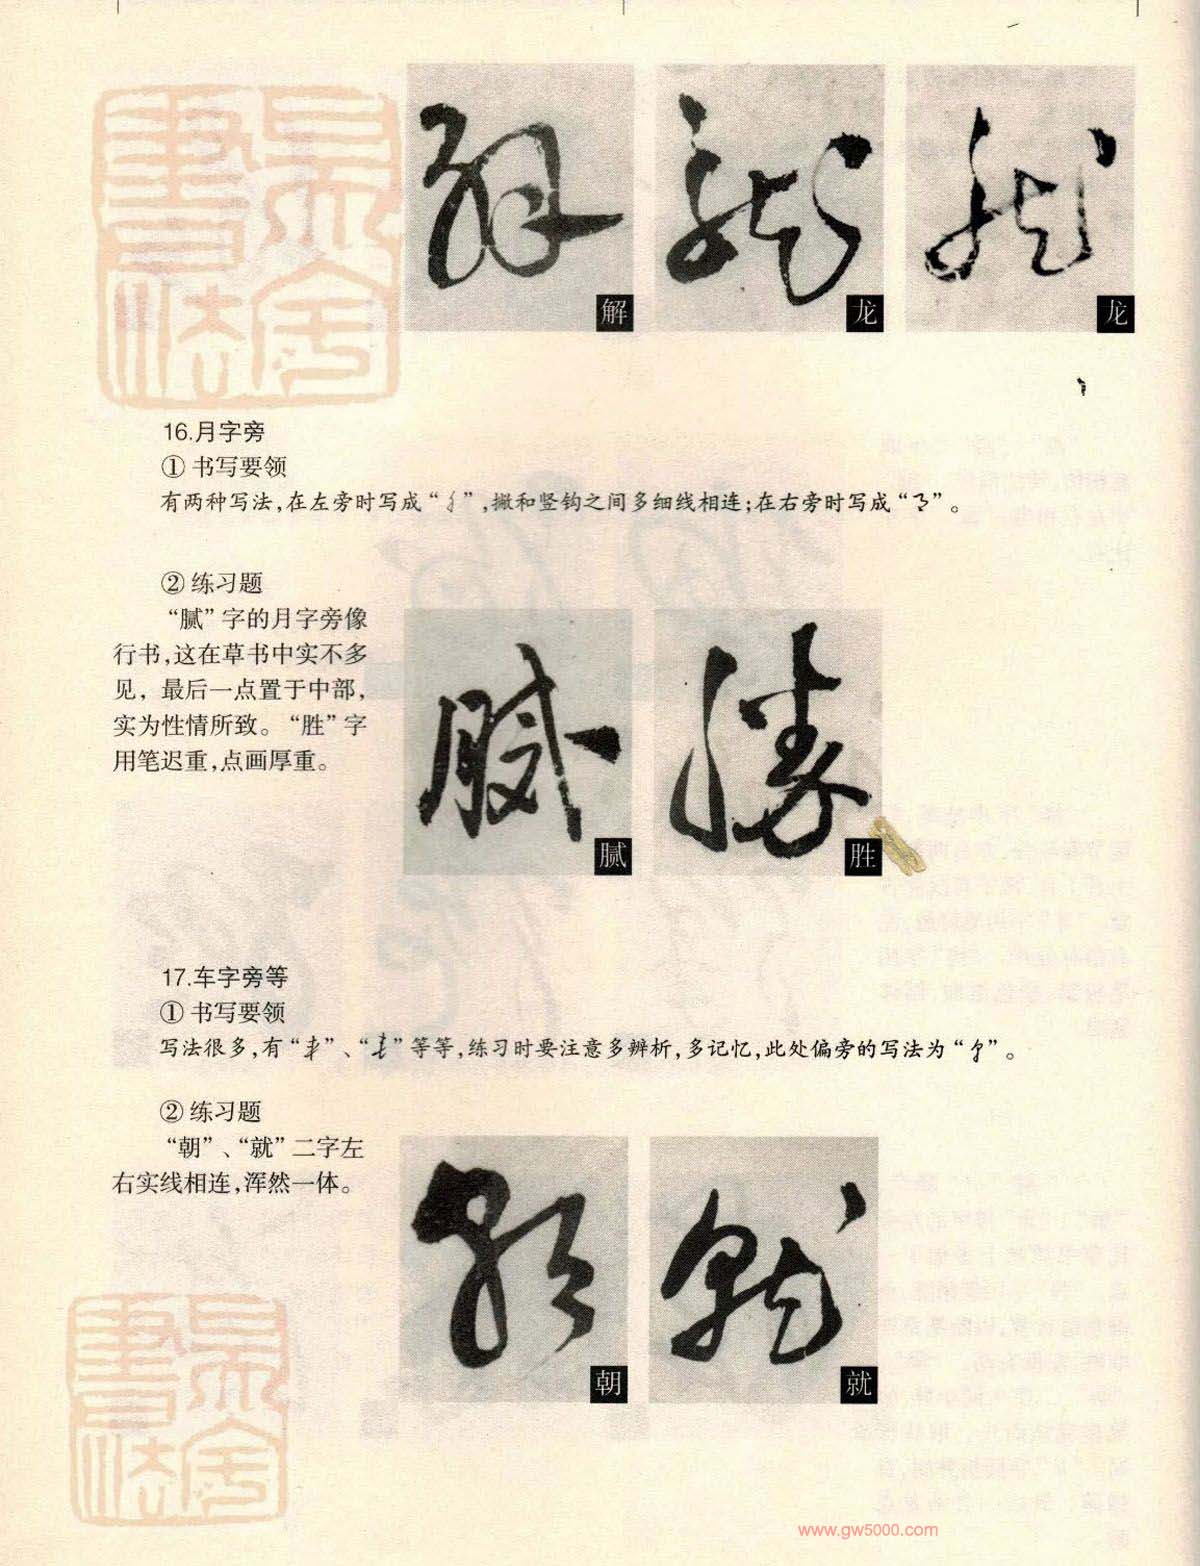 解
龙
龙
16.月字旁
① 书写要领
有两种写法,在左旁时写成“ ”,撇和竖钩之间多细线相连;在右旁时写成“ ”。
② 练习题
“腻”字的月字旁像
行书,这在草书中实不多
见，最后一点置于中部，
实为性情所致。“胜”字
用笔迟重,点画厚重。
腻
胜
17.车字旁等
① 书写要领
写法很多,有“ ”、“ ”等等,练习时要注意多辨析,多记忆,此处偏旁的写法为“ ”。
② 练习题
“朝”、“就”二字左
右实线相连,浑然一体。
朝
就
www.gw5000.com